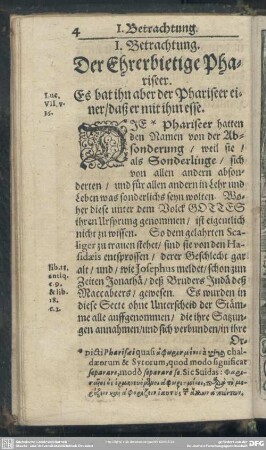 4
I. Betrachtung.
I. Betrachtung.
Der Ehrerbietige Pha-
riseer.
Luc.
VII. v.
Es hat ihn aber der Phariseer ei-
ner/ daß er mit ihm esse.
DIE* Phariseer hatten
den Namen von der Ab-
sonderung / weil sie /
als Sonderlinge / sich
von allen andern abson-
derten / und für allen andern in Lehr und
Leben was sonderlichs seyn wolten. Wo-
her diese unter dem Volck GOTTES
ihren Ursprung genommen / ist eigentlich
nicht zu wissen. So dem gelahrten Sca-
liger zu trauen stehet / sind sie von den Ha-
sidæis entsprossen / derer Geschlecht gar
lib. 18.
antiq.
c. 9.
& lib.
18.
c. 2.
alt / und / wie Josephus meldet / schon zum
Zeiten Jonathâ / deß Bruders Judâ deß
Maccabeers / gewesen. Es wurden in
diese Secte ohne Unterscheid der Stäm-
me alle auffgenommen / die ihre Satzun-
gen annahmen / und sich verbunden / in ihre
Or-
picti Pharisæi quasi
chal-
dæorum & Syrorum, quod modo significat
separare, modò separare se. Sic Suidas: